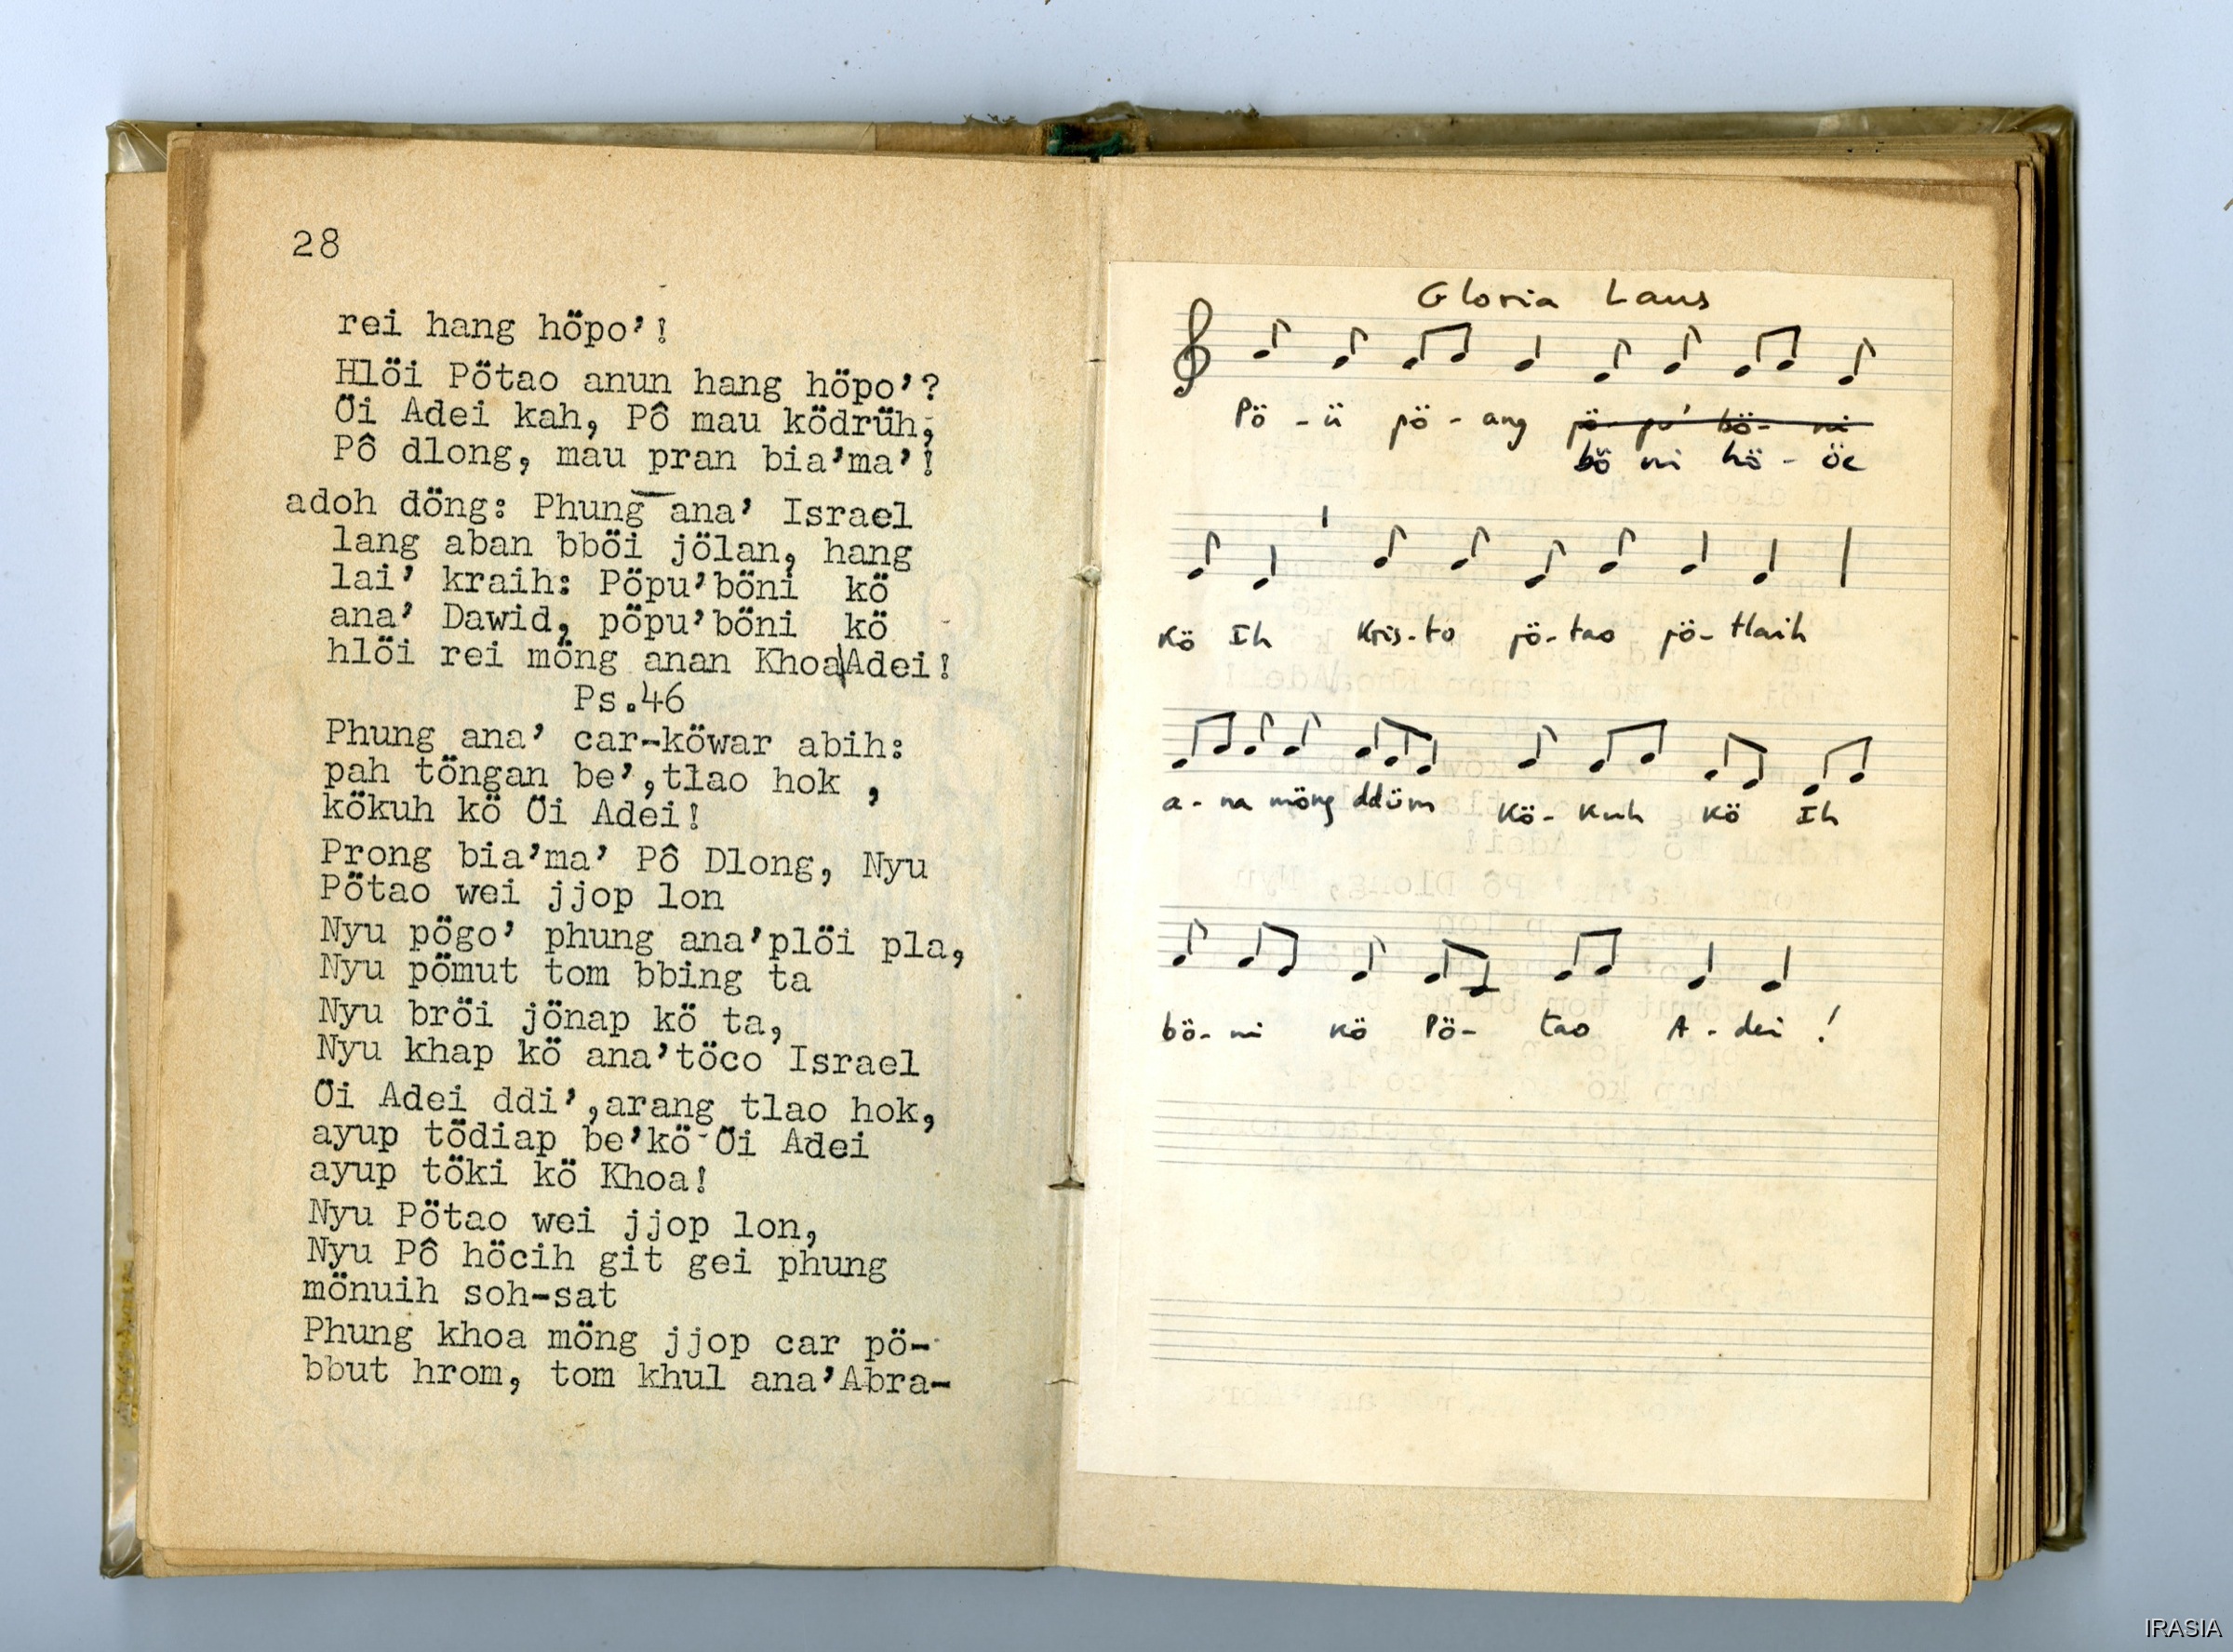 28
rei hang höpo’!
Hlöi Pötao anun hang höpo’?
Öi Adei kah, Pô mau ködrüh,
Pô dlong, mau pran bia’ma’!
adoh döng: Phung ana’ Israel
lang aban bböi jölan, hang
lai’ kraih: Pöpu’böni kö
ana’ Dawid, pöpu’böni kö
hlöi rei möng anan Khoa|Adei!
Ps.46
Phung ana’ car-köwar abih:
pah töngan be’,tlao hok ,
kökuh kö Öi Adei!
Prong bia’ma’ Pô Dlong, Nyu
Pötao wei jjop lon
Nyu pögo’ phung ana’plöi pla,
Nyu pömut tom bbing ta
Nyu bröi jönap kö ta,
Nyu khap kö ana’töco Israel
Öi Adei ddi’,arang tlao hok,
ayup tödiap be’kö Öi Adei
ayup töki kö Khoa!
Nyu Pötao wei jjop lon,
Nyu Pô höcih git gei phung
mönuih soh-sat
Phung khoa möng jjop car pö-
bbut hrom, tom khul ana’Abra-
Gloria Laus
Pö - ü pö - ang pö- pu' bö- ni
bö ni hö - öc
Kö Ih Kris-to pö-tao pö-tlaih
a - na möng ddüm Kö- Kuh Kö Ih
bö- ni Kö Pö- tao A - dei !
IRASIA